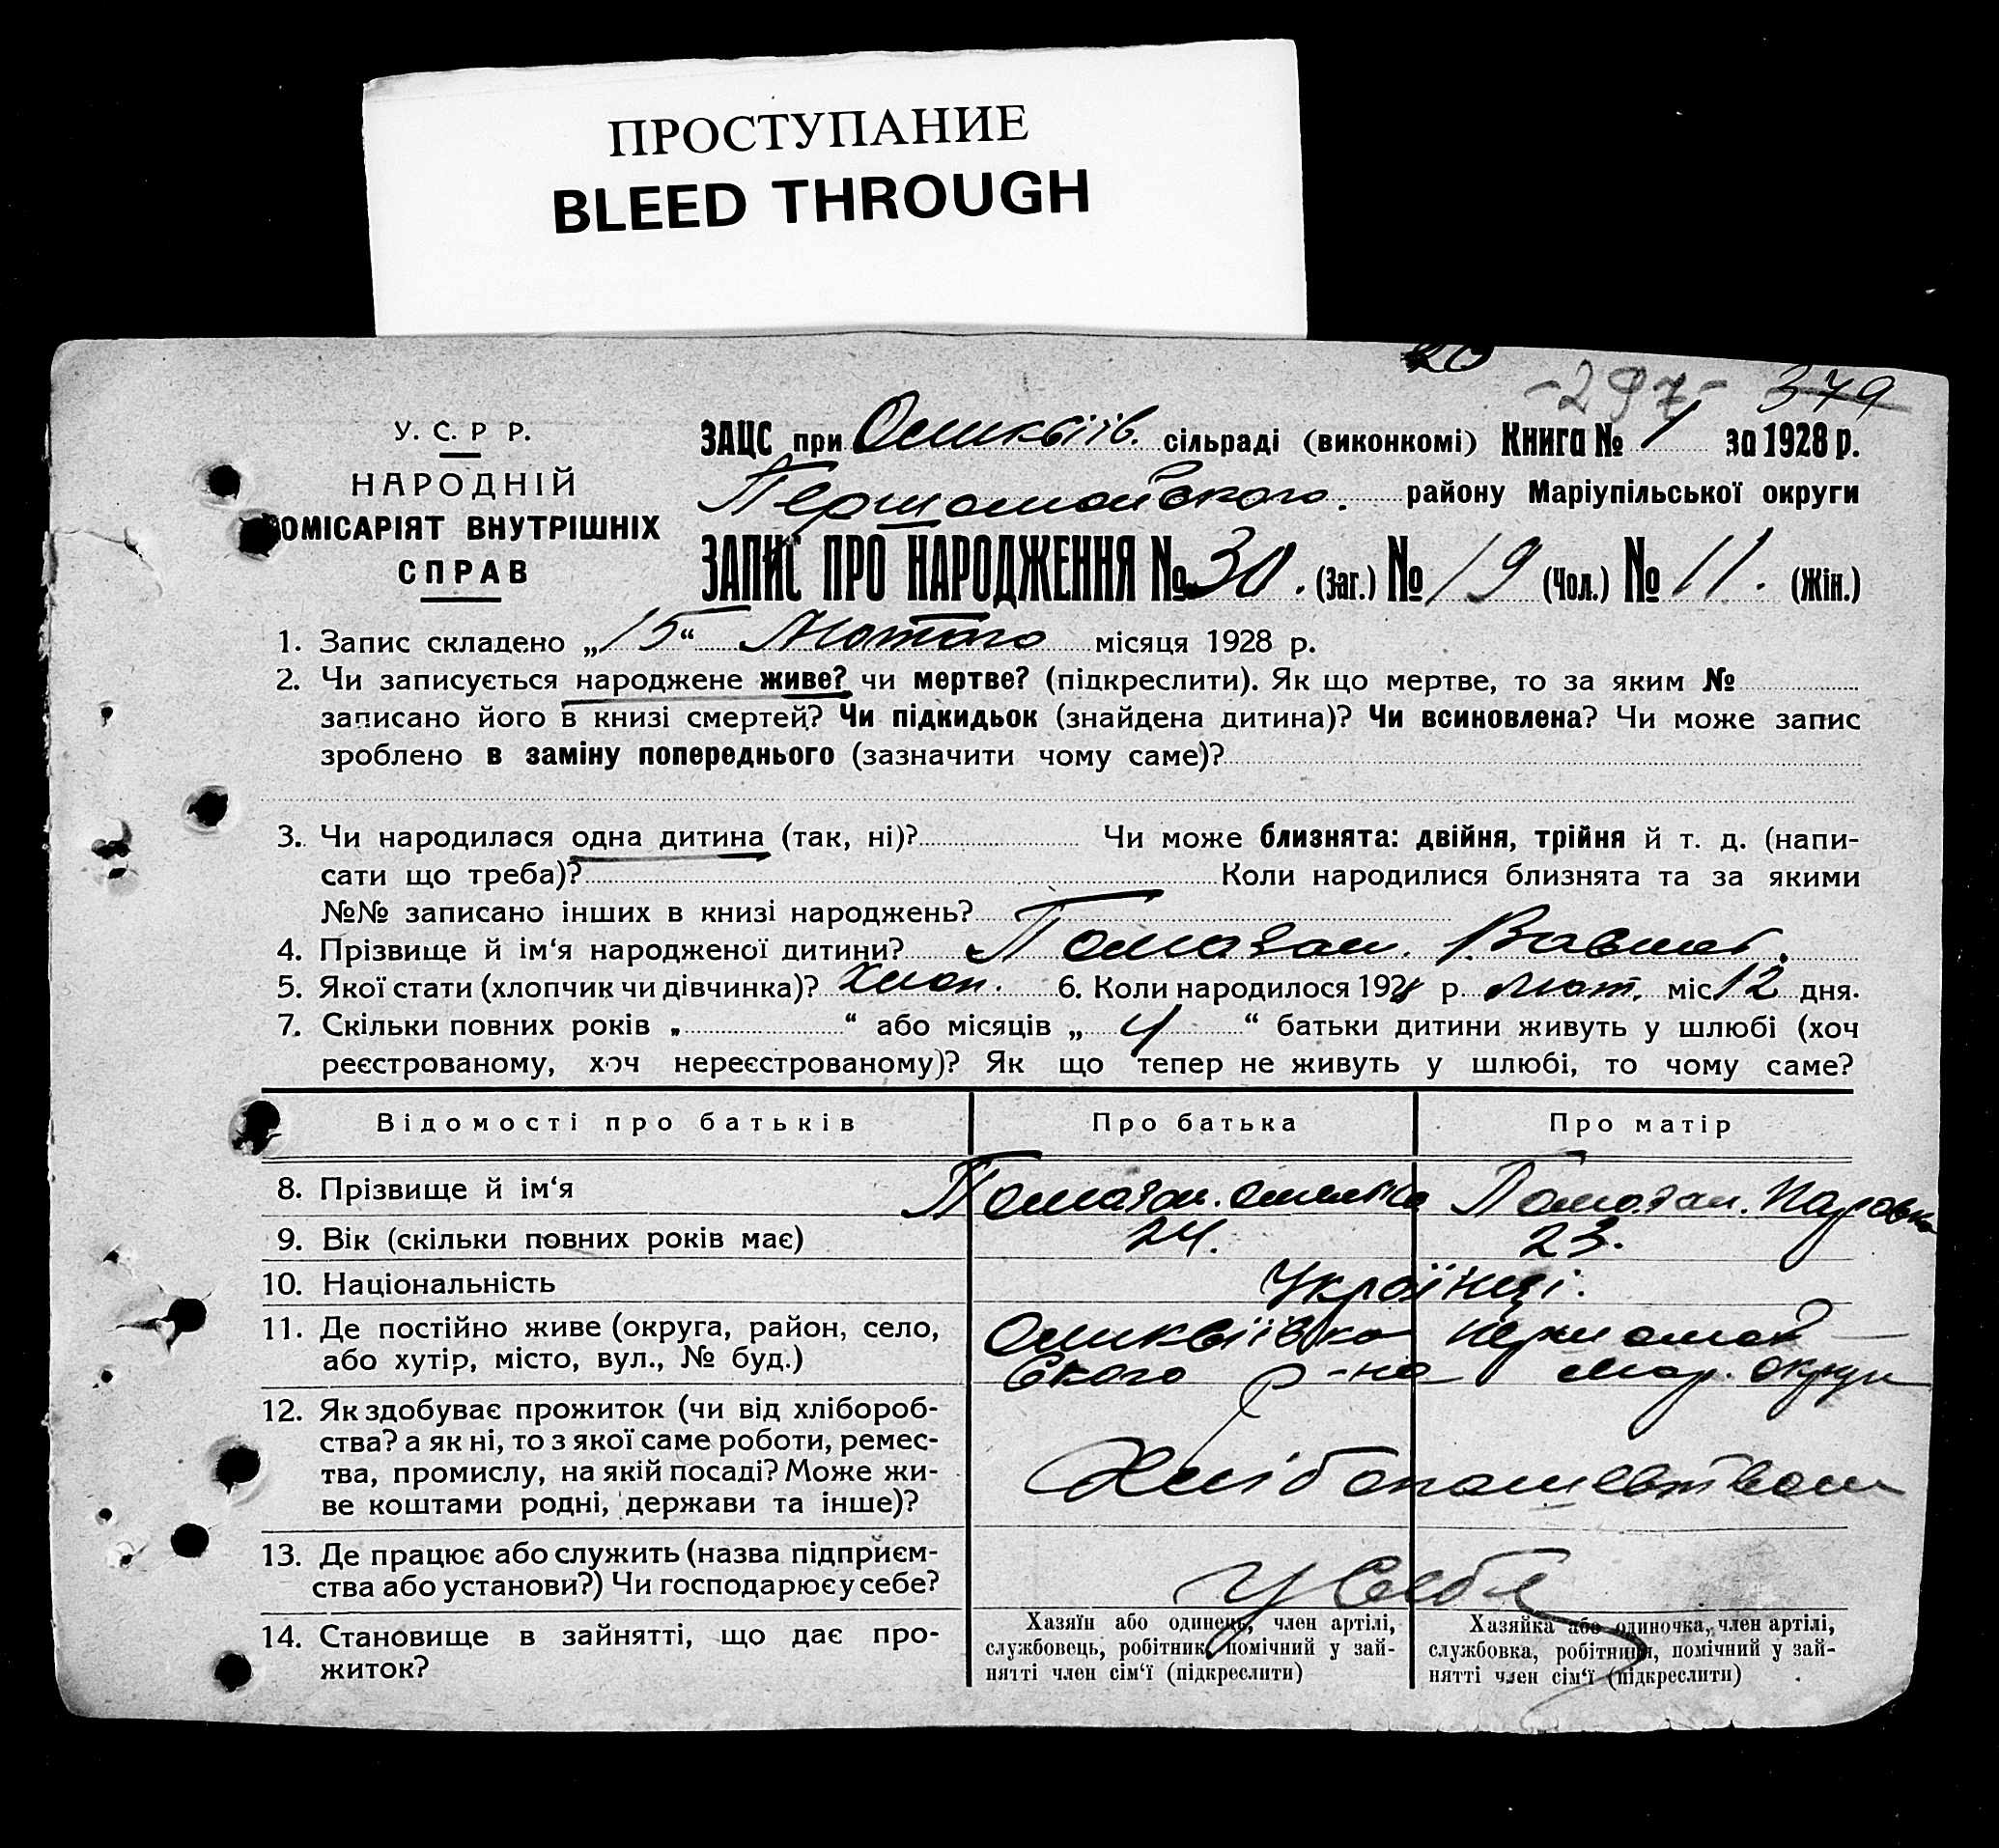 ПРОСТУПАНИЕ
BLEED THROUGH
20
-297- 379
У. С. Р Р.
НАРОДНІЙ
КОМІСАРІЯТ ВНУТРІШНІХ
СПРАВ
ЗАЦС при сільраді (виконкомі) Книга № 1 за 1928 р.
Першомайського району Маріупільської округи
ЗАПИС ПРО НАРОДЖЕННЯ № 30. (Заг.) № 19 (Чол.) № 11. (Жін.)
1. Запис складено „15“ Лютого місяця 1928 р.
2. Чи записується народжене живе? чи мертве? (підкреслити). Як що мертве, то за яким №
записано його в книзі смертей? Чи підкидьок (знайдена дитина)? Чи всиновлена? Чи може запис
зроблено в заміну попереднього (зазначити чому саме)?
3. Чи народилася одна дитина (так, ні)? Чи може близнята: двійня, трійня й т. д. (напи-
сати що треба)? Коли народилися близнята та за якими
№№ записано інших в книзі народжень?
4. Прізвище й ім‘я народженої дитини? Помазан.
5. Якої стати (хлопчик чи дівчинка)? Хлоп. 6. Коли народилося 1928 р. лют. міс 12 дня.
7. Скільки повних років „ “ або місяців „ 4 “ батьки дитини живуть у шлюбі (хоч
реєстрованому, хоч нереєстрованому)? Як що тепер не живуть у шлюбі, то чому саме?
Відомості про батьків Про батька Про матір
8. Прізвище й ім‘я Помазан. Омелько Помазан.
9. Вік (скільки повних років має) 24. 23.
10. Національність Українці.
11. Де постійно живе (округа, район, село,
або хутір, місто, вул., № буд.) першомай-
ського р-на Мар. округи
12. Як здобуває прожиток (чи від хлібороб-
ства? а як ні, то з якої саме роботи, ремес-
тва, промислу, на якій посаді? Може жи-
ве коштами родні, держави та інше)? Хлібопашевством
13. Де працює або служить (назва підприєм-
ства або установи?) Чи господарює у себе? У себе
14. Становище в зайнятті, що дає про-
житок?
Хазяїн або одинець, член артілі,
службовець, робітник, помічний у зай-
нятті член сім‘ї (підкреслити)
Хазяйка або одиночка, член артілі,
службовка, робітниця, помічний у зай-
нятті член сім‘ї (підкреслити)